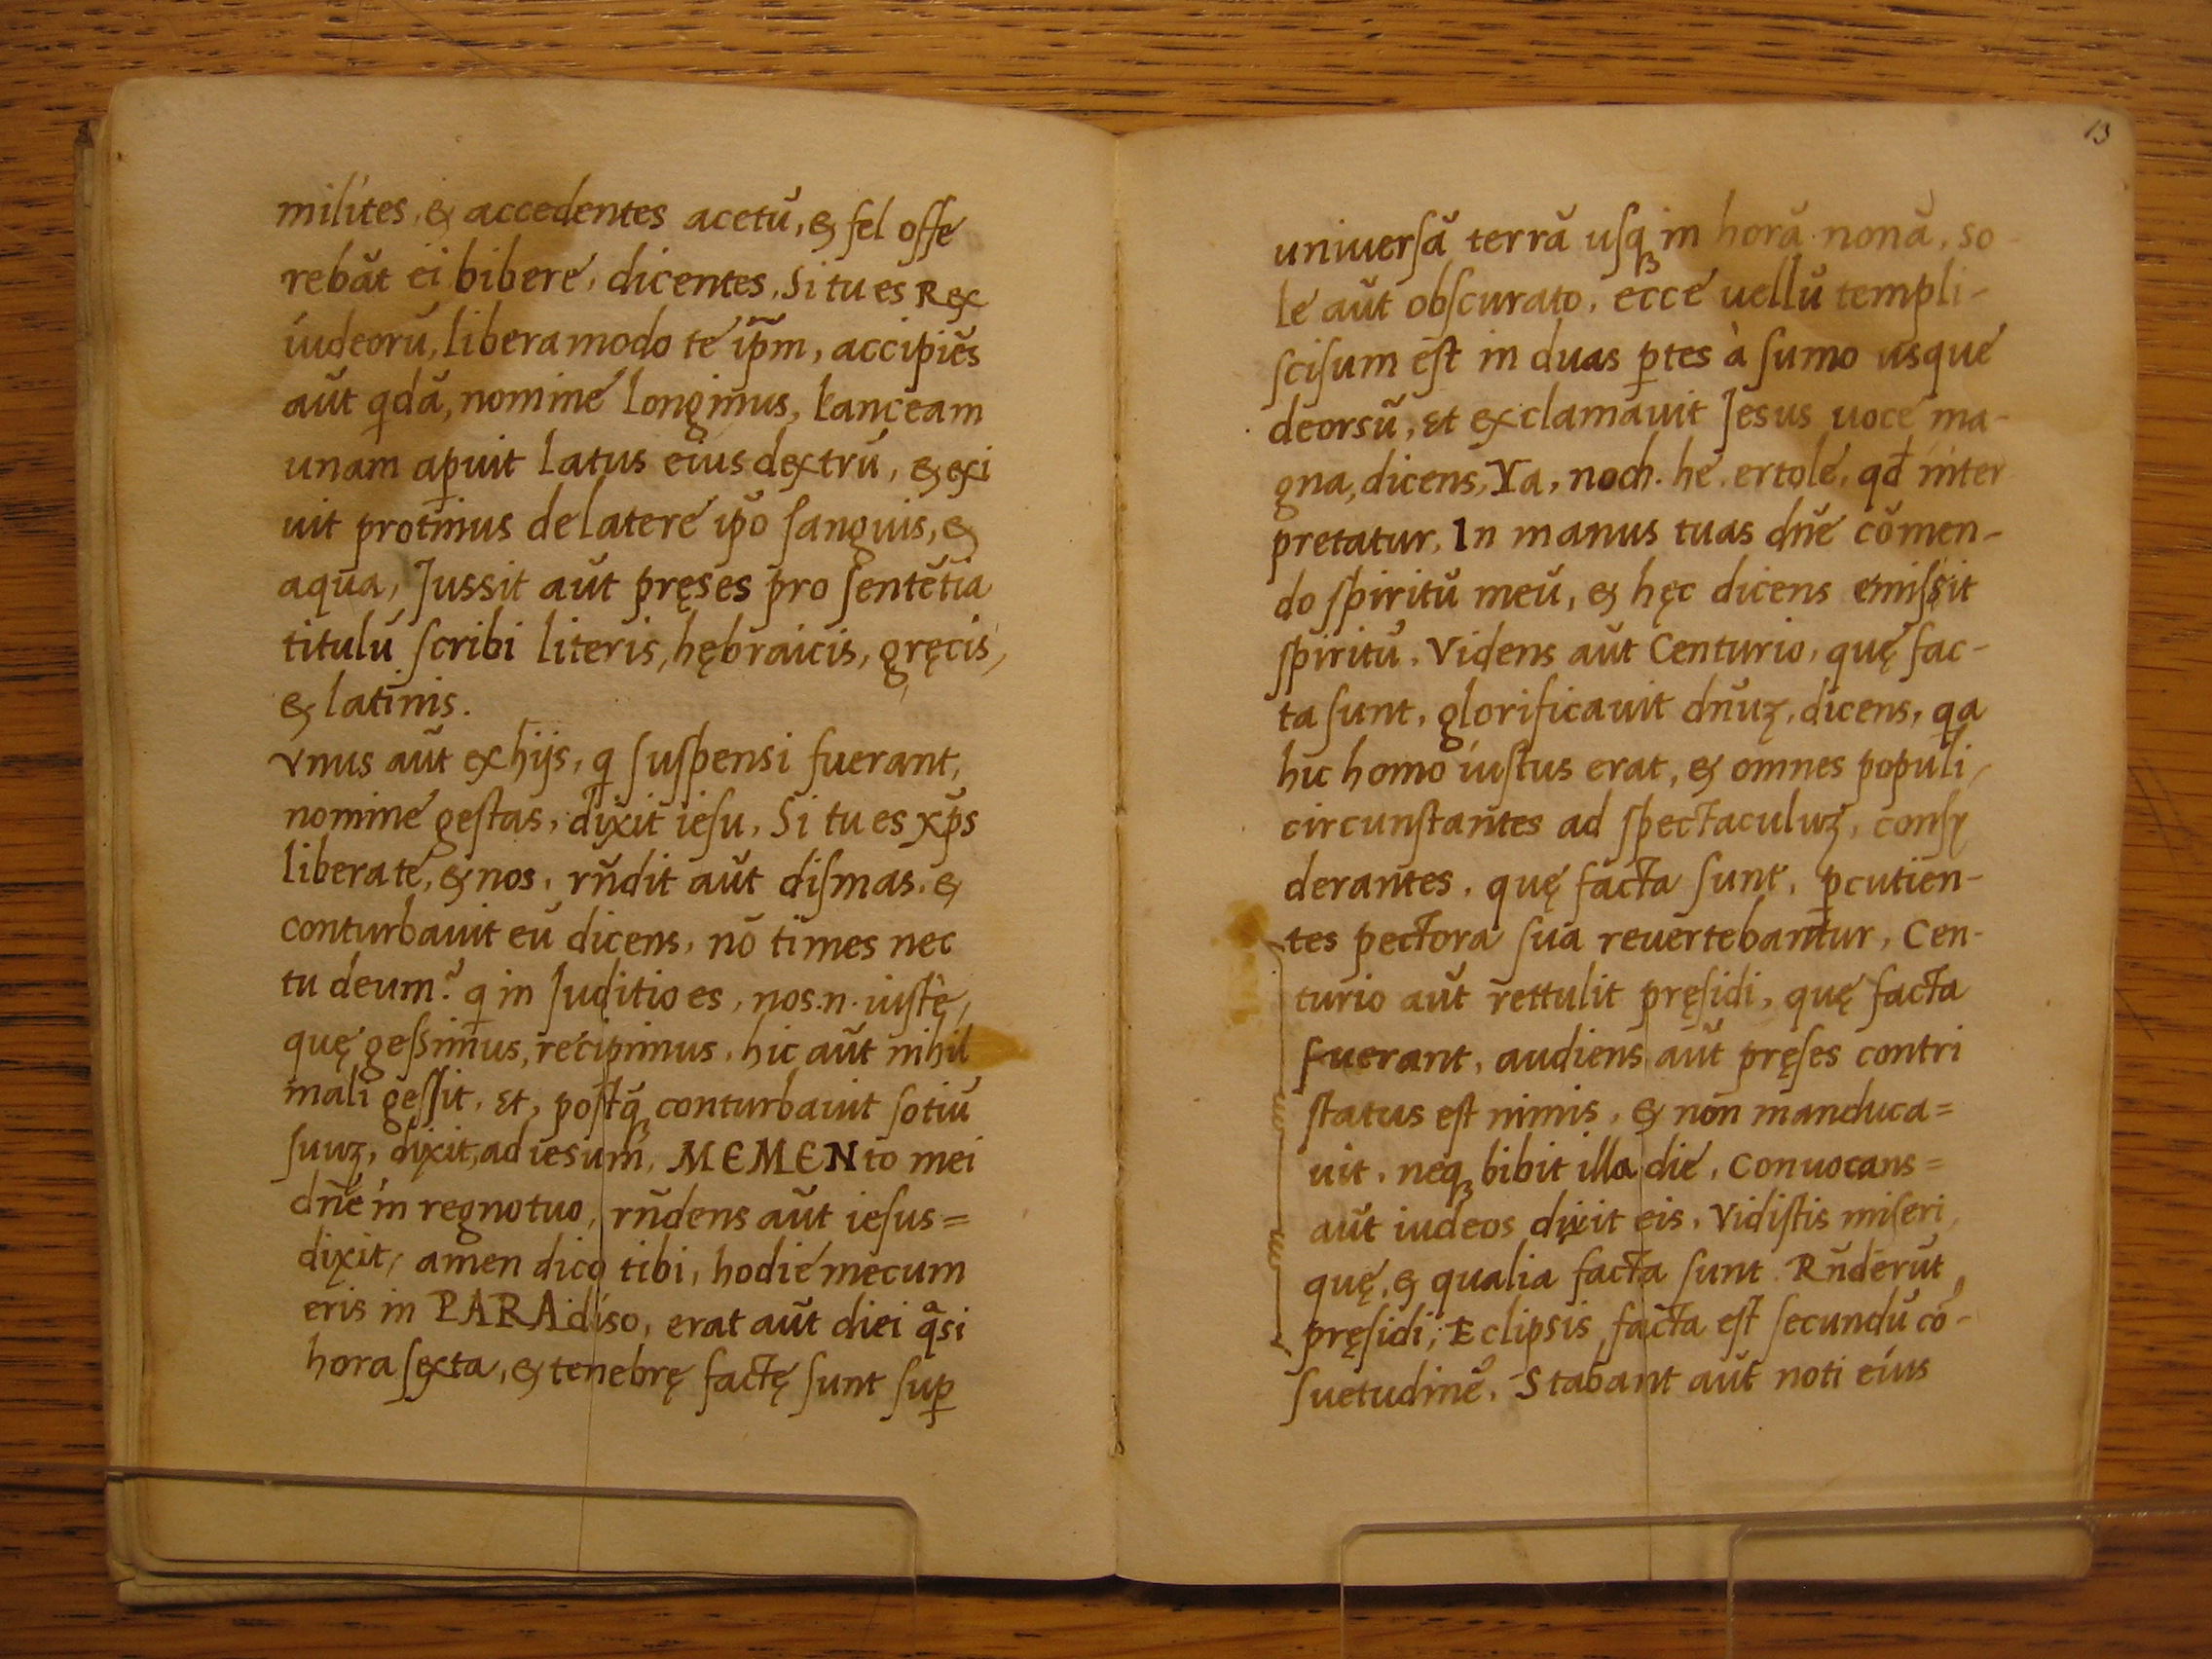 milites, & accedentes acetū, & fel offe
rebāt ei bibere, dicentes, Si tu es Rex
iudeorū, libera modo te ip̄m, accipiēs
aūt qdā, nomine Longinus, Lanceam
unam ap̱uit latus eius dextrū, & exi
uit protinus de latere ip̄o ſanguis, &
aqua, Jussit aūt pręses pro ſentētia
titulū ſcribi literis, hębraicis, gręcis,
& latinis.
Vnus aūt ex hijs, q ſuſpensi fuerant,
nomine geſtas, dixit ieſu, Si tu es xp̄s
libera te, & nos, rn̄dit aūt diſmas, &
conturbauit eū dicens, nō times nec
tu deum? q in Juditio es, nos .n. iuſtè,
quę geſsimus, recipimus, hic aūt nihil
mali geſſit, et, poſtq̄ conturbauit ſotiū
ſuuꝫ, dixit, ad iesum, MEMENto mei
dn̄e in regno tuo, rn̄dens aūt ieſus=
dixit, amen dico tibi, hodie mecum
eris in PARAdiso, erat aūt diei qᵃsi
hora ſexta, & tenebrę factę ſunt ſuꝑ
13
uniuerſā terrā uſqꝫ in horā nonā, so-
le aūt obſcurato, ecce uellū templi-
ſciſum eſt in duas ꝑtes à ſumo usque
deorsū, et exclamauit Jesus uoce ma-
gna, dicens, Ya, noch. he. ertole, qđ inter
pretatur, In manus tuas dn̄e cōmen-
do ſpiritū meū, & hęc dicens emiſsit
ſpiritū, Videns aūt Centurio, quę fac-
ta ſunt, glorificauit dn̄uꝫ, dicens, qa
hic homo iuſtus erat, & omnes populi,
circunſtantes ad ſpectaculuꝫ, conſy
derantes, quę facta ſunt, ꝑcutien-
tes pectora ſua reuertebantur, Cen-
turio aūt rettulit pręſidi, quę facta
fuerant, audiens aūt pręſes contri
ſtatus eſt nimis, & non manduca=
uit, neqꝫ bibit illa die, Conuocans=
aūt iudeos dixit eis, Vidiſtis miſeri,
quę, & qualia facta ſunt Rn̄derūt,
pręſidi; Eclipsis facta eſt ſecundū cō-
ſuetudinē, Stabant aūt noti eius